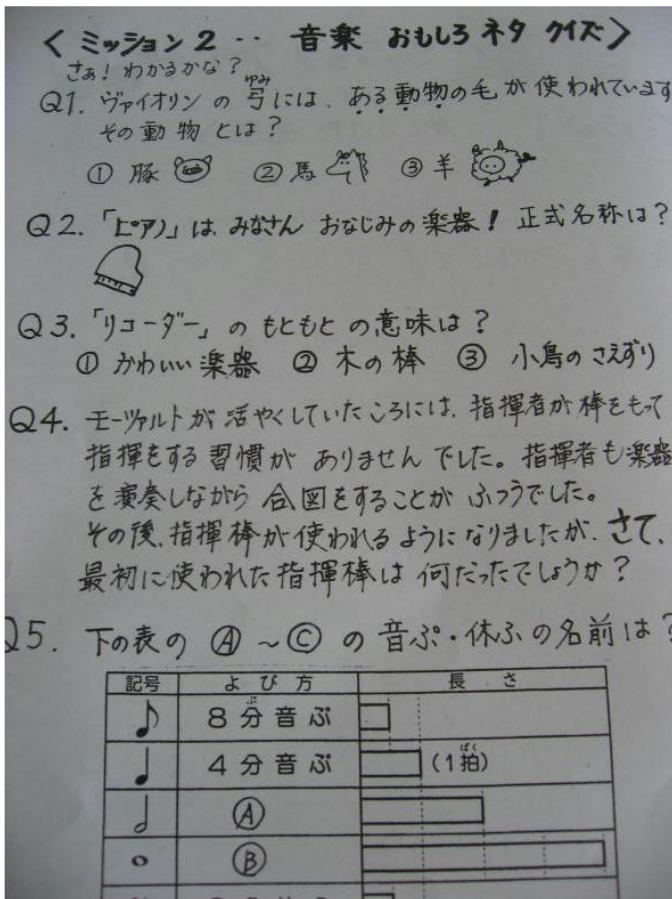 〈 ミッション2‥ 音楽 おもしろ ネタ クイズ〉
さぁ！わかるかな？
Q1. ヴァイオリンの弓には、ある動物の毛が使われています
ゆみ
その動物とは？
① 豚 ② 馬 ③ 羊
Q2. 「ピアノ」は、みなさん おなじみの楽器！ 正式名称は？
Q3. 「リコーダー」の もともと の意味は？
① かわいい楽器 ② 木の棒 ③ 小鳥のさえずり
Q4. モーツァルトが活やくしていたころには、指揮者が棒をもって
指揮をする習慣が ありませんでした。指揮者も楽器
を演奏しながら 合図をすることが ふつうでした。
その後、指揮棒が使われるようになりましたが、さて、
最初に使われた指揮棒は 何だったでしょうか？
Q5. 下の表の Ⓐ～Ⓒ の 音ぷ・休ふの名前は？
記号 よび方 長さ
8分音ぷ
ぶ
4分音ぷ (1拍)
ぱく
Ⓐ
Ⓑ